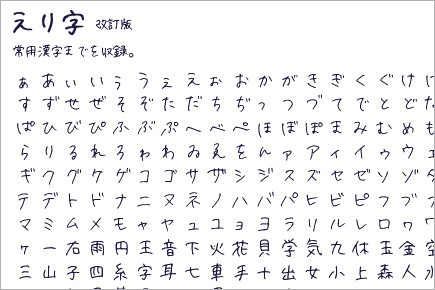 えり字 改訂版
常用漢字までを収録。
ぁあぃいぅうぇえぉおかがきぎくぐけげ
すずせぜそぞただちぢっつづてでとどな
ぱひびぴふぶぷへべぺほぼぽまみむめも
らりるれろゎわゐゑをんァアィイゥウェ
ギクグケゲコゴサザシジスズセゼソゾタ
テデトドナニヌネノハバパヒビピフブプ
マミムメモャヤュユョヨラリルレロヮワ
ヶ一右雨円王音下火花貝学気九休玉金空
三山子四糸字耳七車手十出女小上森人水